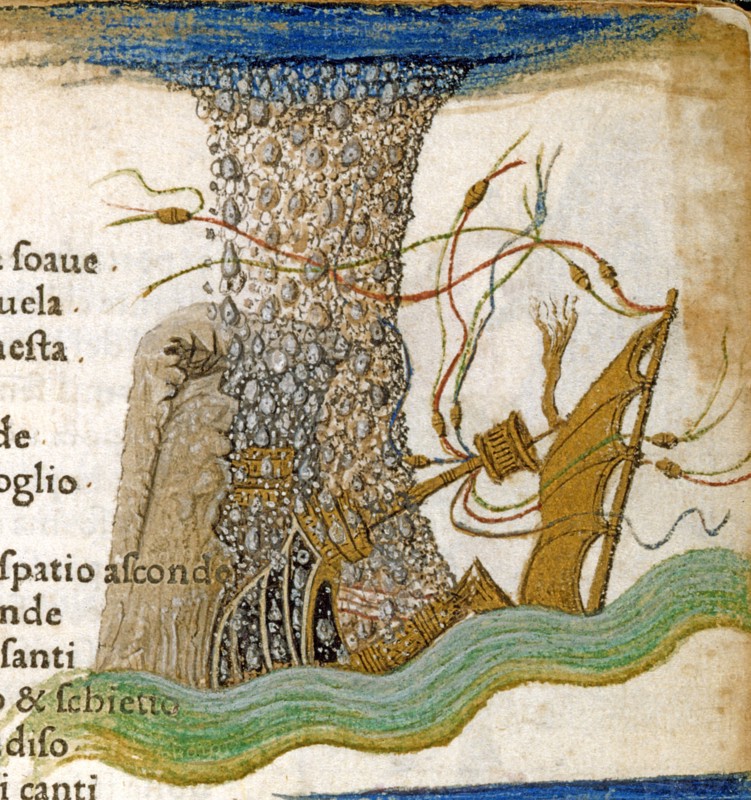 ſoaue .
uela .
neſta .
de
oglio .
ſpatio aſconde
nde
ſanti
o & ſchietto
adiſo
i canti